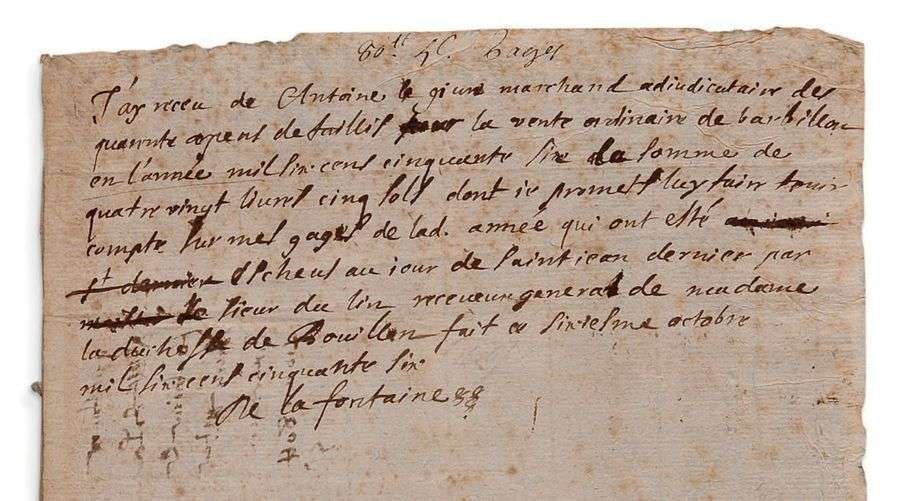 80lt 5s. Gages
J'ay receu de Antoine le giure marchand adiudicataire des
quarente arpens de taillis pour la vente ordinaire de barbillon
en l'année mil six cens cinquante six la somme de
quatre vingt liures cinq sols dont ie promets luy faire tenir
compte sur mes gages de lad. année qui ont esté
st dernier escheus au iour de saint iean dernier par
le sieur du lin receueur general de madame
la duchesse de Bouillon fait ce sixiesme octobre
mil six cens cinquante six
De la fontaine